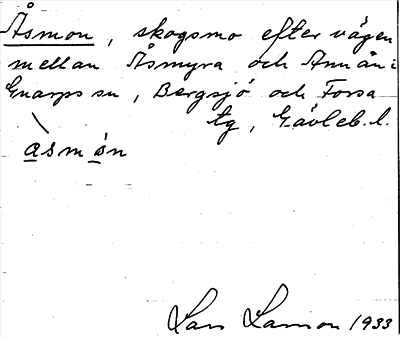 Åsmon, skogsmo efter vägen
mellan Åsmyra och Annån i
Gnarps sn, Bergsjö och Forsa
tg, Gävleb. l.
asmo̍n
Lars Larsson 1933